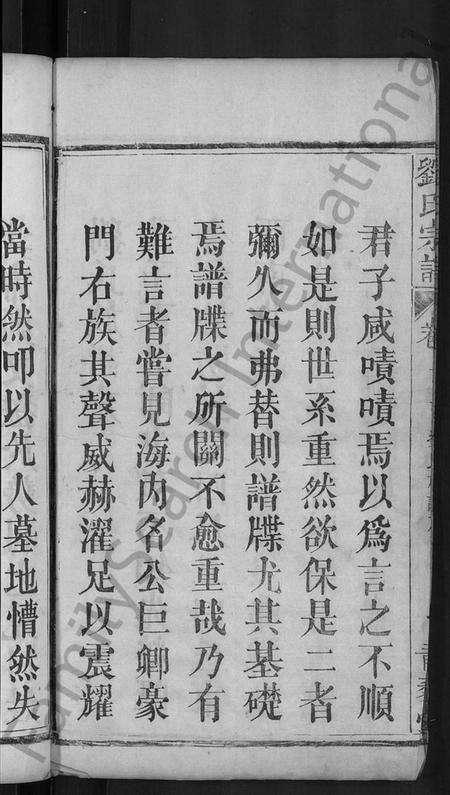 劉氏宗譜
卷
君子咸嘖嘖焉以為言之不順
如是則世系重然欲保是二者
彌久而弗替則譜牒尤其基礎
焉譜牒之所關不愈重哉乃有
難言者嘗見海內名公巨卿豪
門右族其聲威赫濯足以震耀
當時然叩以先人墓地懵然失
FamilySearch International